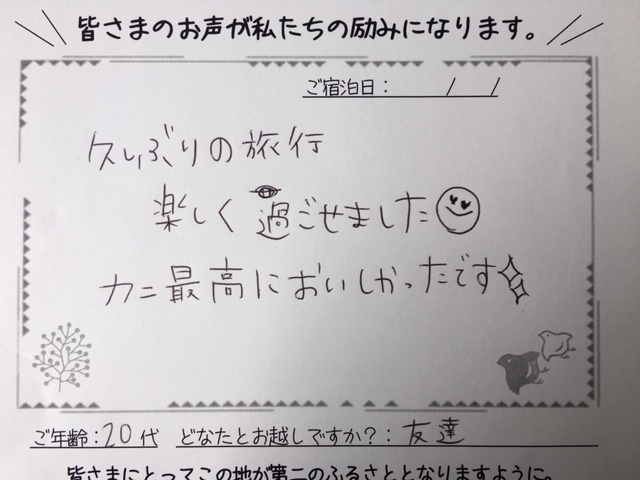 皆さまのお声が私たちの励みになります。
ご宿泊日: / /
久しぶりの旅行
楽しく過ごせました
カニ最高においしかったです
ご年齢:20代 どなたとお越しですか?:友達
皆さまにとってこの地が第二のふるさととなりますように。